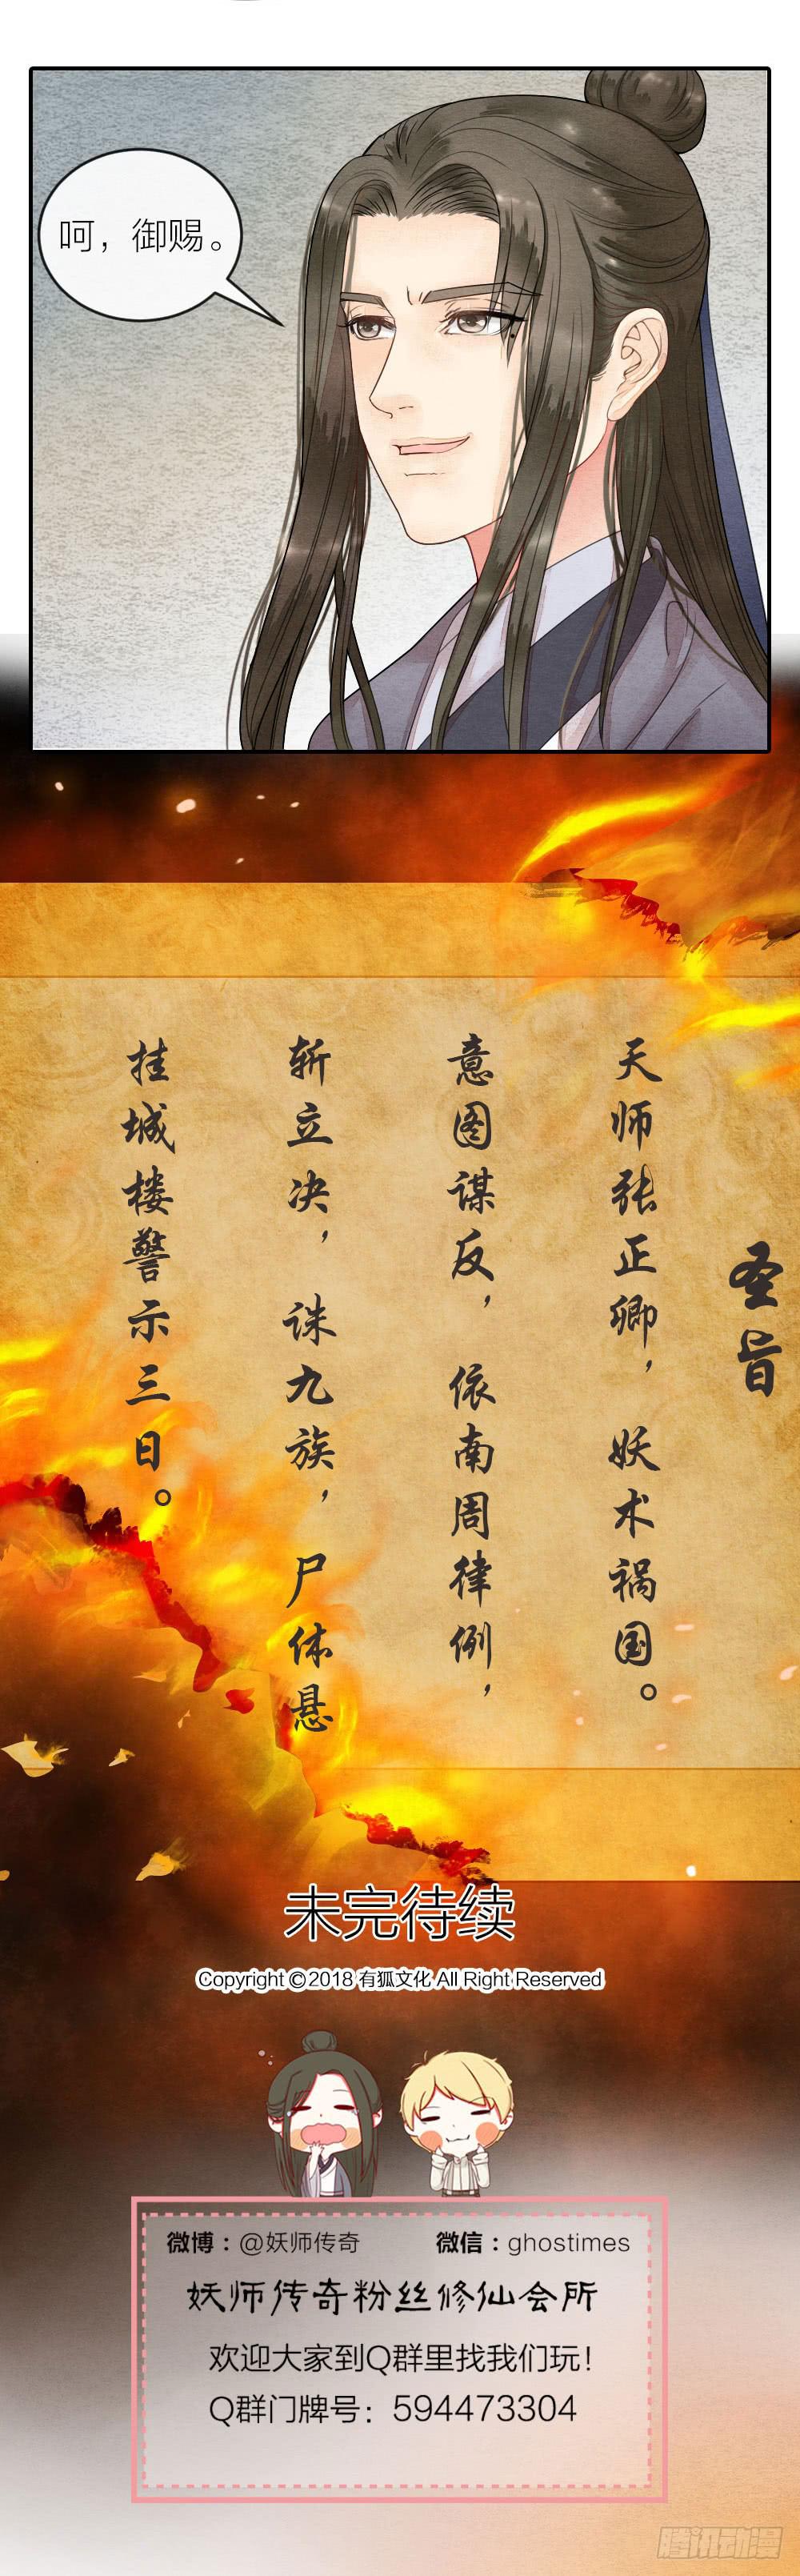 呵，御赐。
圣旨
天师张正卿，妖术祸国。
意图谋反，依南周律例，
斩立决，诛九族，尸体悬
挂城楼警示三日。
未完待续
Copyright ©2018 有狐文化 All Right Reserved
微博：@妖师传奇 微信：ghostimes
妖师传奇粉丝修仙会所
欢迎大家到Q群里找我们玩！
Q群门牌号：594473304
腾讯动漫